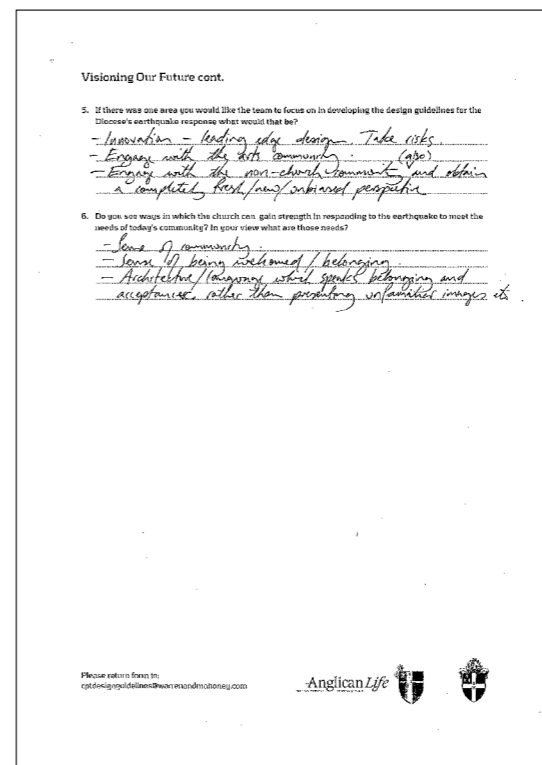 Visioning Our Future cont.
5. If there was one area you would like the team to focus on in developing the design guidelines for the
Diocese's earthquake response what would that be?
- Innovation - leading edge design. Take risks.
- Engage with the arts community. (also)
- Engage with the non-church community and obtain
a completely fresh/new/unbiased perspective
6. Do you see ways in which the church can gain strength in responding to the earthquake to meet the
needs of today's community? In your view what are those needs?
- Sense of community.
- Sense of being welcomed / belonging.
- Architecture/language which speaks belonging and
acceptances, rather than presenting unfamiliar images etc.
Please return form to:
cptdesignguidelines@warrenandmahoney.com
Anglican Life